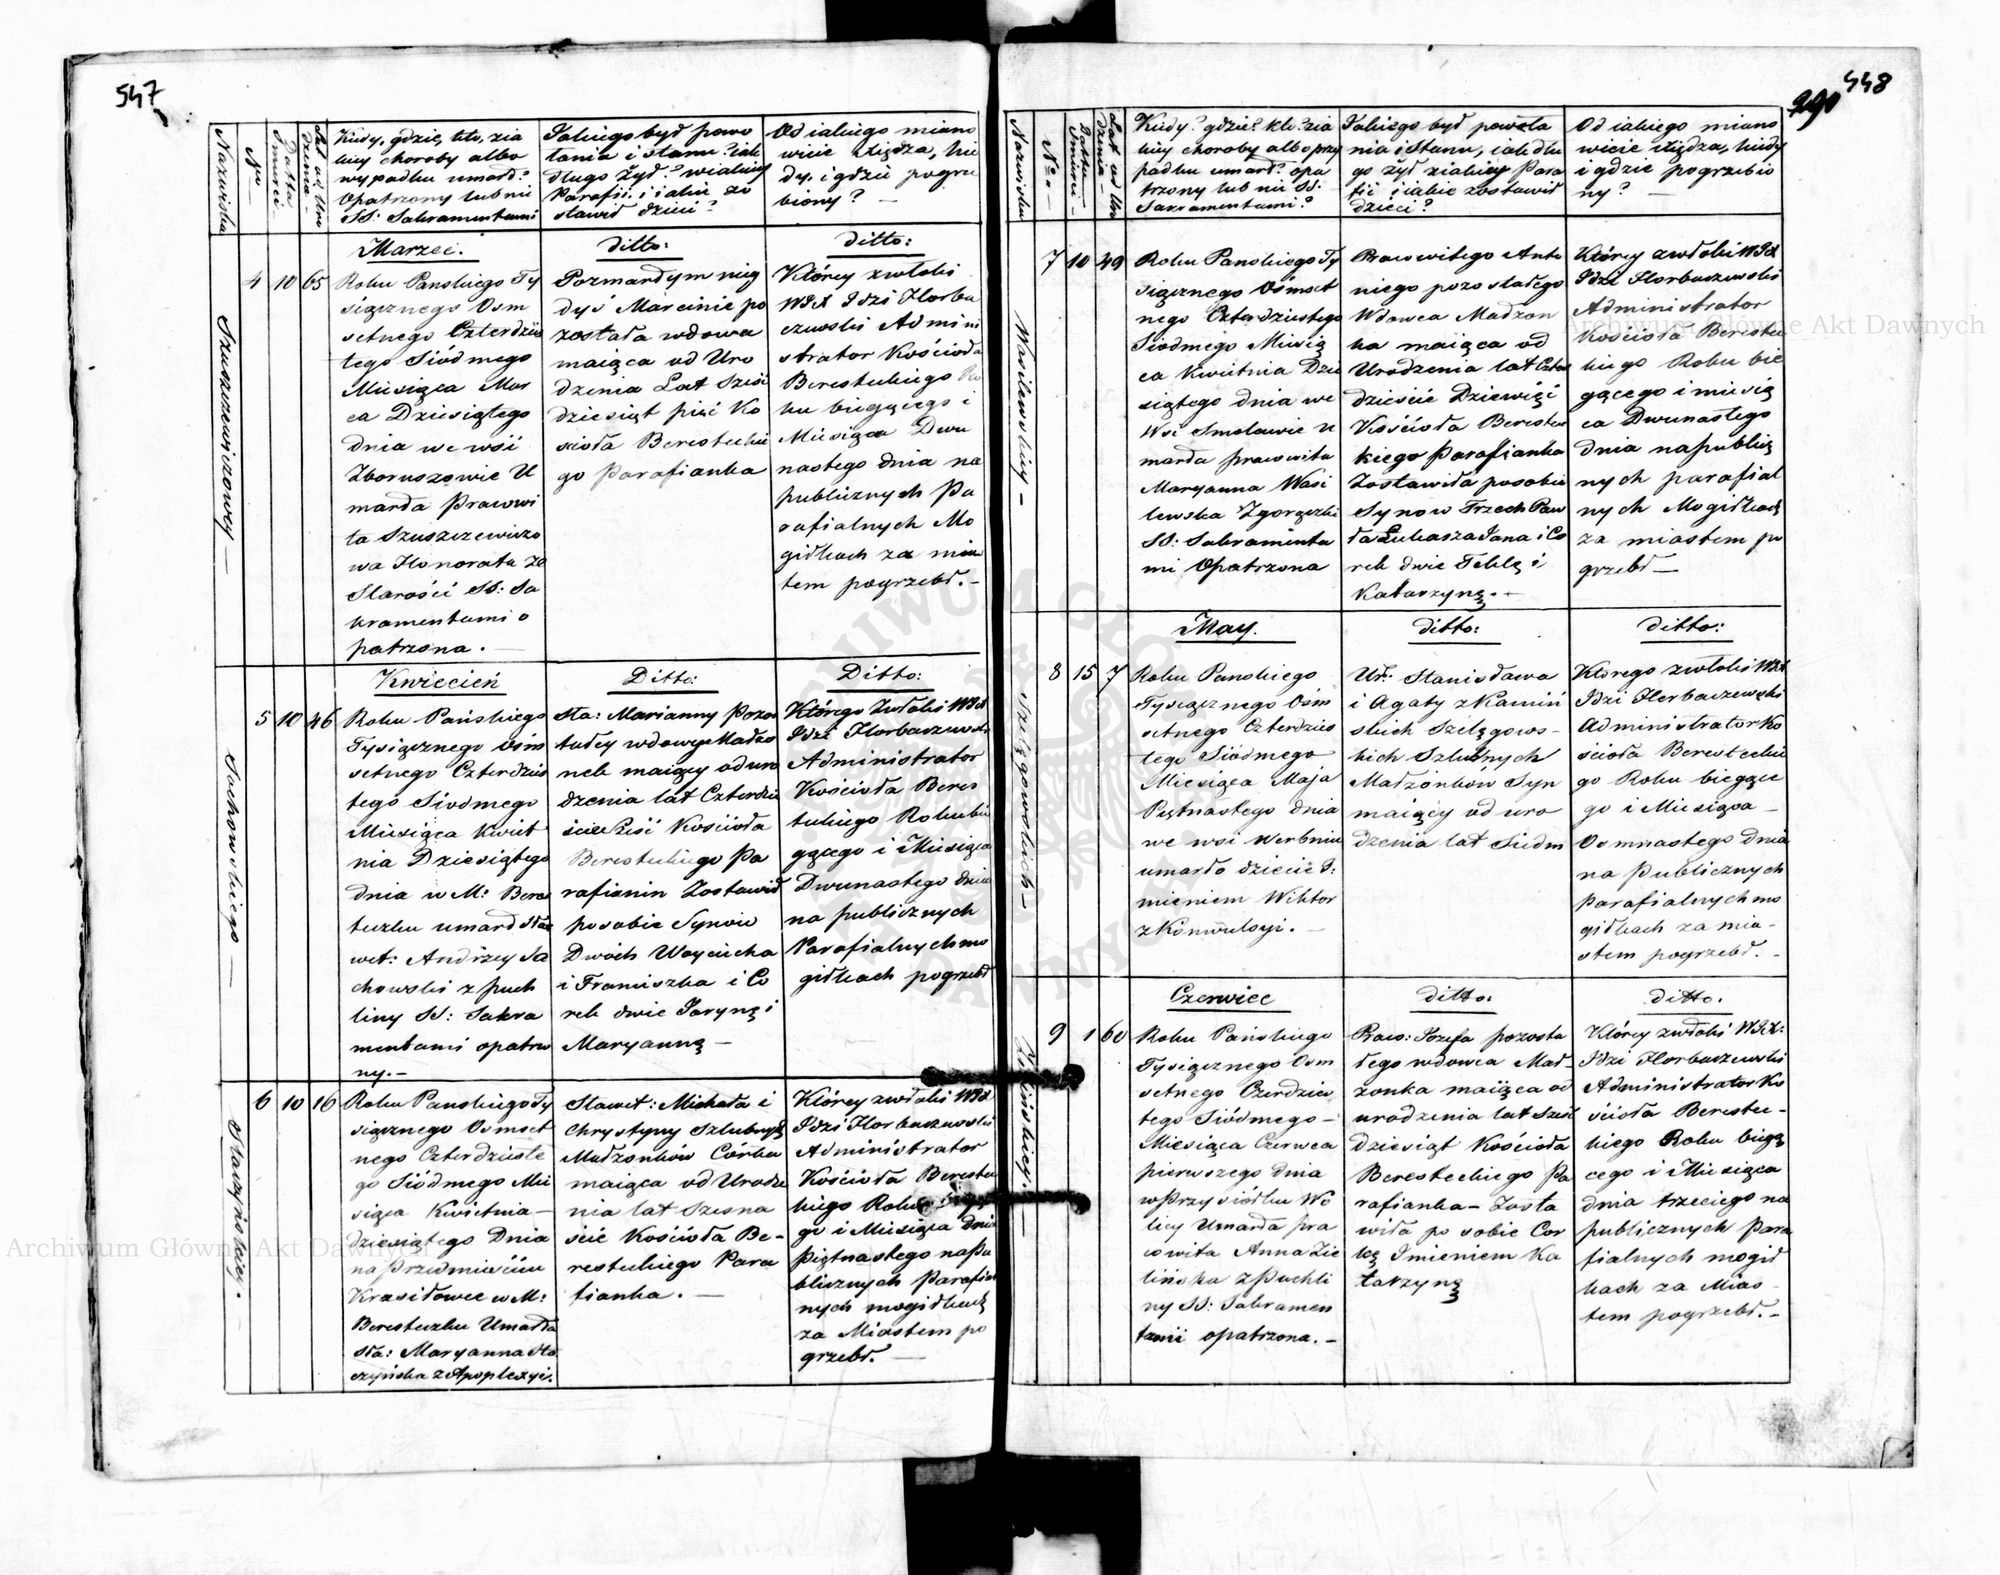 547
Nazwiska
Nro
Datta Śmierci
Lat od Uro dzenia
Kiedy, gdzie, kto, zia
kiey choroby albo
wypadku umarł?
Opatrzony lub nie
SS: Sakramentami
Jakiego był powo
łania i stanu? iak
długo żył? wiakiey
Parafii? i iakie zo
stawił dzieci?
Od iakiego miano
wicie Xiędza, kie
dy i gdzie pogrze
biony? —
Szuszczewiczowey —
4
10
65
Marzec.
Roku Panskiego Ty
siącznego Osm
setnego Czterdzies
tego Siodmego
Miesiąca Mar
ca Dziesiątego
dnia we wsi
Zboruszowie U
marła Pracowi
ta Szuszczewiczo
wa Honorata ze
Starości SS: Sa
kramentami o
patrzona. —
ditto:
Pozmarłym nieg
dyś Marcinie po
została wdowa
maiąca od Uro
dzenia Lat Sześć
dziesiąt pięć Ko
scioła Beresteckie
go Parafianka
ditto:
Którey zwłoki
WJX Idzi Horba
czewski Admini
strator Kościoła
Beresteckiego Ro
ku biegącego i
Miesiąca Dwu
nastego dnia na
publicznych Pa
rafialnych Mo
giłkach za mias
tem pogrzebł. —
Sochowskiego —
5
10
46
Kwiecień
Roku Pańskiego
Tysiącznego Ośm
setnego Czterdzies
tego Siodmego
Miesiąca Kwiet
nia Dziesiątego
dnia w M: Beres
teczku umarł Sła
wet: Andrzey So
chowski z puch
liny SS: Sakra
mentami opatrzo
ny. —
Ditto:
Sła: Marianny Pozos
tałey wdowy Małżo
nek maiący od uro
dzenia lat Czterdzie
ście Sześć Kościoła
Beresteckiego Pa
rafianin Zostawił
po sobie Synów
Dwóch Woyciecha
i Franciszka i Co
rek dwie Jarynę i
Maryannę —
Ditto:
Którego Zwłoki WJX
Idzi Horbaczewski
Administrator
Kościoła Beres
teckiego Roku bie
gącego i Miesiąca
Dwunastego dnia
na publicznych
Parafialnych mo
giłkach pogrzebł
6
10
16
Roku Panskiego Ty
siącznego Osmset
nego Czterdzieste
go Siódmego Mie
siąca Kwietnia —
dziesiątego Dnia
na Przedmieściu
Krasiłowce w M:
Beresteczku Umarła
sła: Maryanna Sta
czyńska z Apoplexyi.
Sławet: Michała i
Chrystyny Szlubnych
Małżonków Córka
maiąca od Urodze
nia lat Szesna
ście Kościoła Be-
resteckiego Para
fianka. —
Którey zwłoki WJX
Idzi Horbaczewski
Administrator
Kościoła Berestec
kiego Roku biegące
go i Miesiąca dnia
Piętnastego na Pu
blicznych Parafial
nych mogiłkach
za Miastem po
grzebł. —
448
290
Nazwiska
Nro
Datta Śmierci
Lat od Uro dzenia
Kiedy? gdzie? kto? zia
kiey choroby albo przy
padku umarł? opa
trzony lub nie SS:
Sakramentami?
Jakiego był powoła
nia i Stanu, iak dłu
go żył wiakiey Para
fii i iakie zostawił
dzieci?
Od iakiego miano
wicie Xiędza, kiedy
i gdzie pogrzebio
ny? —
Wasilewskiey —
7
10
49
Roku Panskiego Ty
siącznego Ośmset
nego Czterdziestego
Siodmego Miesią
ca Kwietnia Dzie
siątego dnia we
Wsi Smolawie u
marła pracowita
Maryanna Wasi
lewska Zgorączki
SS: Sakramenta
mi Opatrzona
Pracowitego Anto
niego pozostałego
Wdowca Małżon
ka maiąca od
Urodzenia lat Czter
dzieście Dziewięć
Kościoła Berestec
kiego Parafianka
Zostawiła posobie
Synow Trzech Paw
ła Łukasza Jana i Co
rek dwie Teklę i
Katarzynę. —
Którey zwłoki WJX
Idzi Horbaczewski
Administrator
Kościoła Berestec
kiego Roku bie
gącego i miesią
ca Dwunastego
dnia na publicz
nych parafial
nych Mogiłkach
za miastem po
grzebł —
Szelągowskich —
8
15
7
May.
Roku Panskiego
Tysiącznego Ośm
setnego Czterdzies
tego Siódmego
Miesiąca Maja
Piętnastego dnia
we wsi Werbniu
umarło dziecie I:
mieniem Wiktor
z Konwulsyi. —
ditto:
Ur: Stanisława
i Agaty z Kamiń
skich Szelągows-
kich Szlubnych
Małżonków Syn
maiący od uro
dzenia lat Siedm
ditto:
Ktorego zwłoki WJX
Idzi Horbaczewski
Administrator Ko
ścioła Beresteckie
go Roku biegące
go i Miesiąca —
Osmnastego Dnia
na Publicznych
Parafialnych mo
giłkach za mia-
stem pogrzebł. —
Zielińskiey. —
9
1
60
Czerwiec
Roku Pańskiego
Tysiącznego Osm
setnego Czerdzies
tego Siódmego —
Miesiąca Czerwca
pierwszego dnia
w Przysiółku Wo
licy Umarła pra
cowita Anna Zie
lińska z Puchli
ny SS: Sakramen
tami opatrzona. —
ditto:
Praco: Józefa pozosta
łego wdowca Mał-
żonka maiąca od
urodzenia lat Sześć
dziesiąt Kościoła
Beresteckiego Pa
rafianka — Zosta
wiła po sobie Cor
kę Imieniem Ka
tarzynę
ditto.
Którey zwłoki WJX:
Idzi Horbaczewski
Administrator Ko
ścioła Berestec-
kiego Roku biegą
cego i Miesiąca
dnia trzeciego na
publicznych Para
fialnych mogił
kach za Mias-
tem pogrzebł. —
Archiwum Główne Akt Dawnych
Archiwum Główne Akt Dawnych